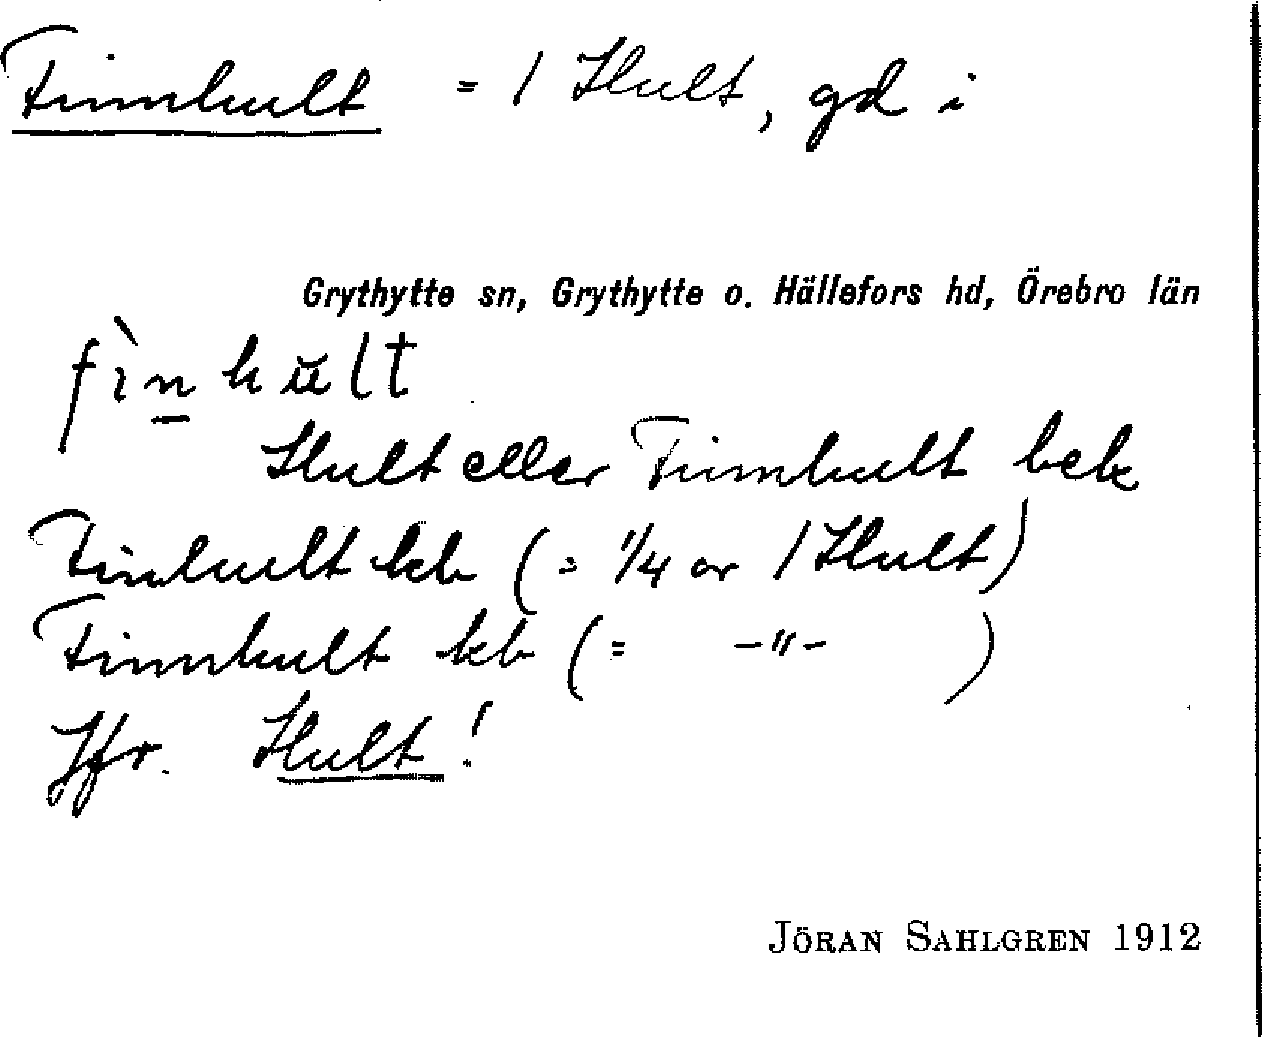 Finnhult = 1 Hult, gd i
Grythytte sn, Grythytte o. Hällefors hd, Örebro län
fìn̲hŭlt
Hult eller Finnhult bek
Finhult kb (= 1/4 av 1 Hult)
Finnhult kb (= -"- )
Jfr. Hult!
JÖRAN SAHLGREN 1912